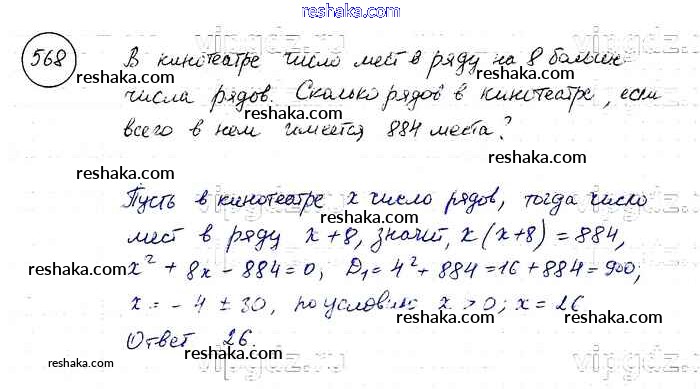 reshaka.com
568 В кинотеатре число мест в ряду на 8 больше
reshaka.com reshaka.com reshaka.com
числа рядов. Сколько рядов в кинотеатре, если
всего в нем имеется 884 места?
reshaka.com reshaka.com reshaka.com
Пусть в кинотеатре x число рядов, тогда число
reshaka.com
мест в ряду x+8, значит, x(x+8)=884,
reshaka.com reshaka.com
x² + 8x - 884 = 0, D₁ = 4² + 884 = 16 + 884 = 900;
x = - 4 ± 30, по условию x > 0; x = 26
reshaka.com
Ответ 26.
reshaka.com reshaka.com reshaka.com